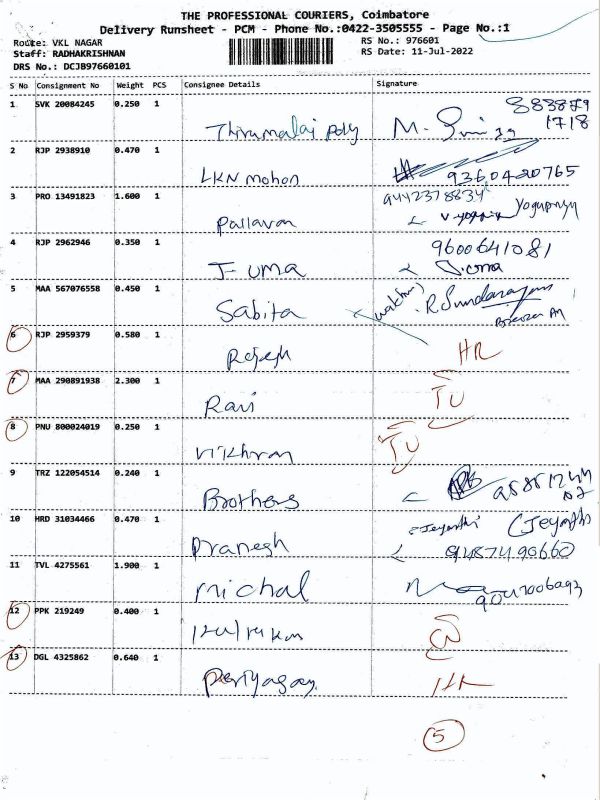 THE PROFESSIONAL COURIERS, Coimbatore
Delivery Runsheet - PCM - Phone No.:0422-3505555 - Page No.:1
Route: VKL NAGAR RS No.: 976601
Staff: RADHAKRISHNAN RS Date: 11-Jul-2022
DRS No.: DCJB97660101
S No Consignment No Weight PCS Consignee Details Signature
1 SVK 20084245 0.250 1 Thirumalai Poly M.
1718
2 RJP 2938910 0.470 1 LKN mohan 9360420765
3 PRO 13491823 1.600 1 Pallavan 9442378834
4 RJP 2962946 0.350 1 J-uma 9600641081
J.uma
5 MAA 567076558 0.450 1 Sabita R.Sundararajan
6 RJP 2959379 0.580 1 Rajesh HR
7 MAA 290891938 2.300 1 Ravi TU
8 PNU 800024019 0.250 1 Vikhram TU
9 TRZ 122054514 0.240 1 Brothers
10 HRD 31034466 0.470 1 Pranesh Jeyanthi (Jeyanthi
9487490660
11 TVL 4275561 1.900 1 michal
12 PPK 219249 0.400 1
13 DGL 4325862 0.640 1 Periyasamy HR
5